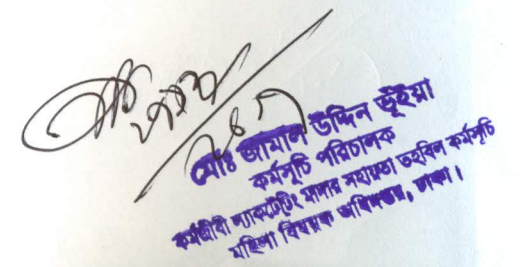 মোঃ জামাল উদ্দিন ভূঁইয়া
কর্মসূচি পরিচালক
কর্মজীবী ল্যাকটেটিং মাদার সহায়তা তহবিল কর্মসূচি
মহিলা বিষয়ক অধিদপ্তর, ঢাকা।